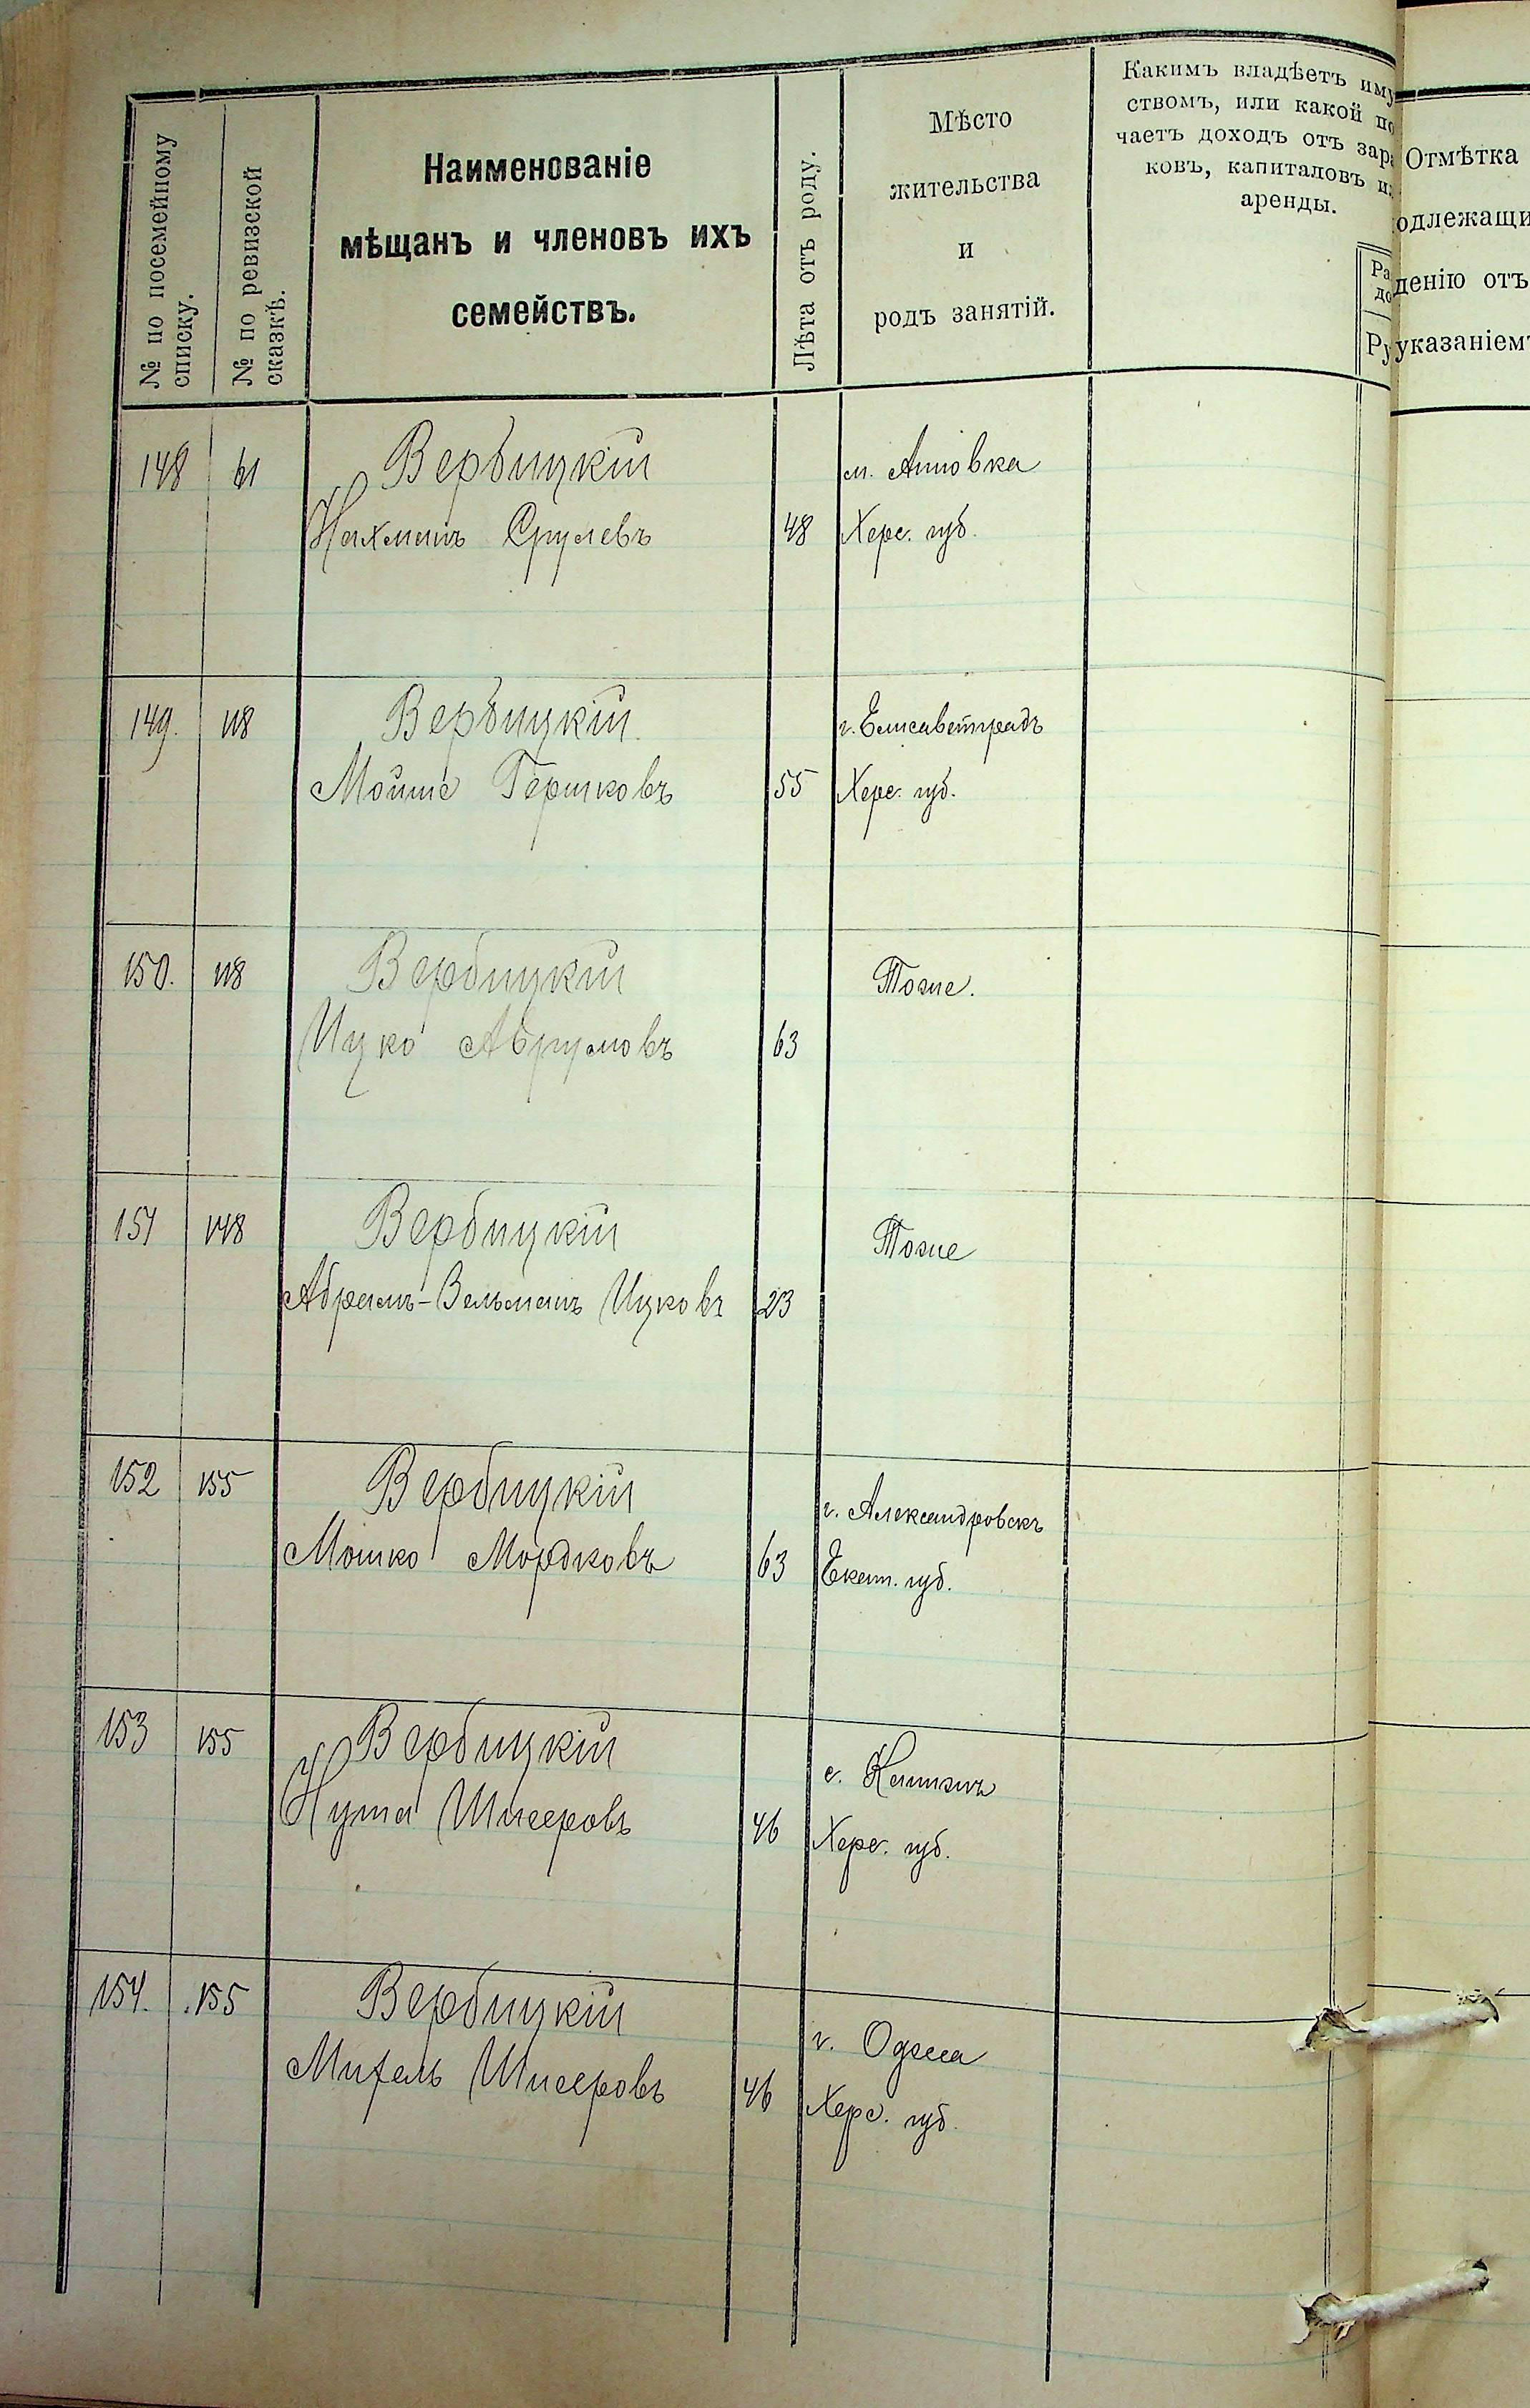 № по посемейному
списку.
№ по ревизской
сказкѣ.
Наименованіе
мѣщанъ и членовъ ихъ
семействъ.
Лѣта отъ роду.
Мѣсто
жительства
и
родъ занятій.
Какимъ владѣетъ иму
ствомъ, или какой по
чаетъ доходъ отъ зара
ковъ, капиталовъ и
аренды.
Ра
до
Ру
Отмѣтка
одлежащи
денію отъ
указаніемъ
148 61 Вербицкій м. Анновка
Нахманъ Срулевъ 48 Херс. губ.
149. 118 Вербицкій г. Елисаветградъ
Мойше Гершковъ 55 Херс. губ.
150. 118 Вербицкій Тоже.
Ицко Абрумовъ 63
151 118 Вербицкій Тоже
Абрамъ-Зельманъ Ицковъ 23
152 155 Вербицкій г. Александровскъ
Мошко Мордковъ 63 Екат. губ.
153 155 Вербицкій с.
Нута Шмеровъ 46 Херс. губ.
154. 155 Вербицкій г. Одесса
Михель Шмеровъ 46 Херс. губ.